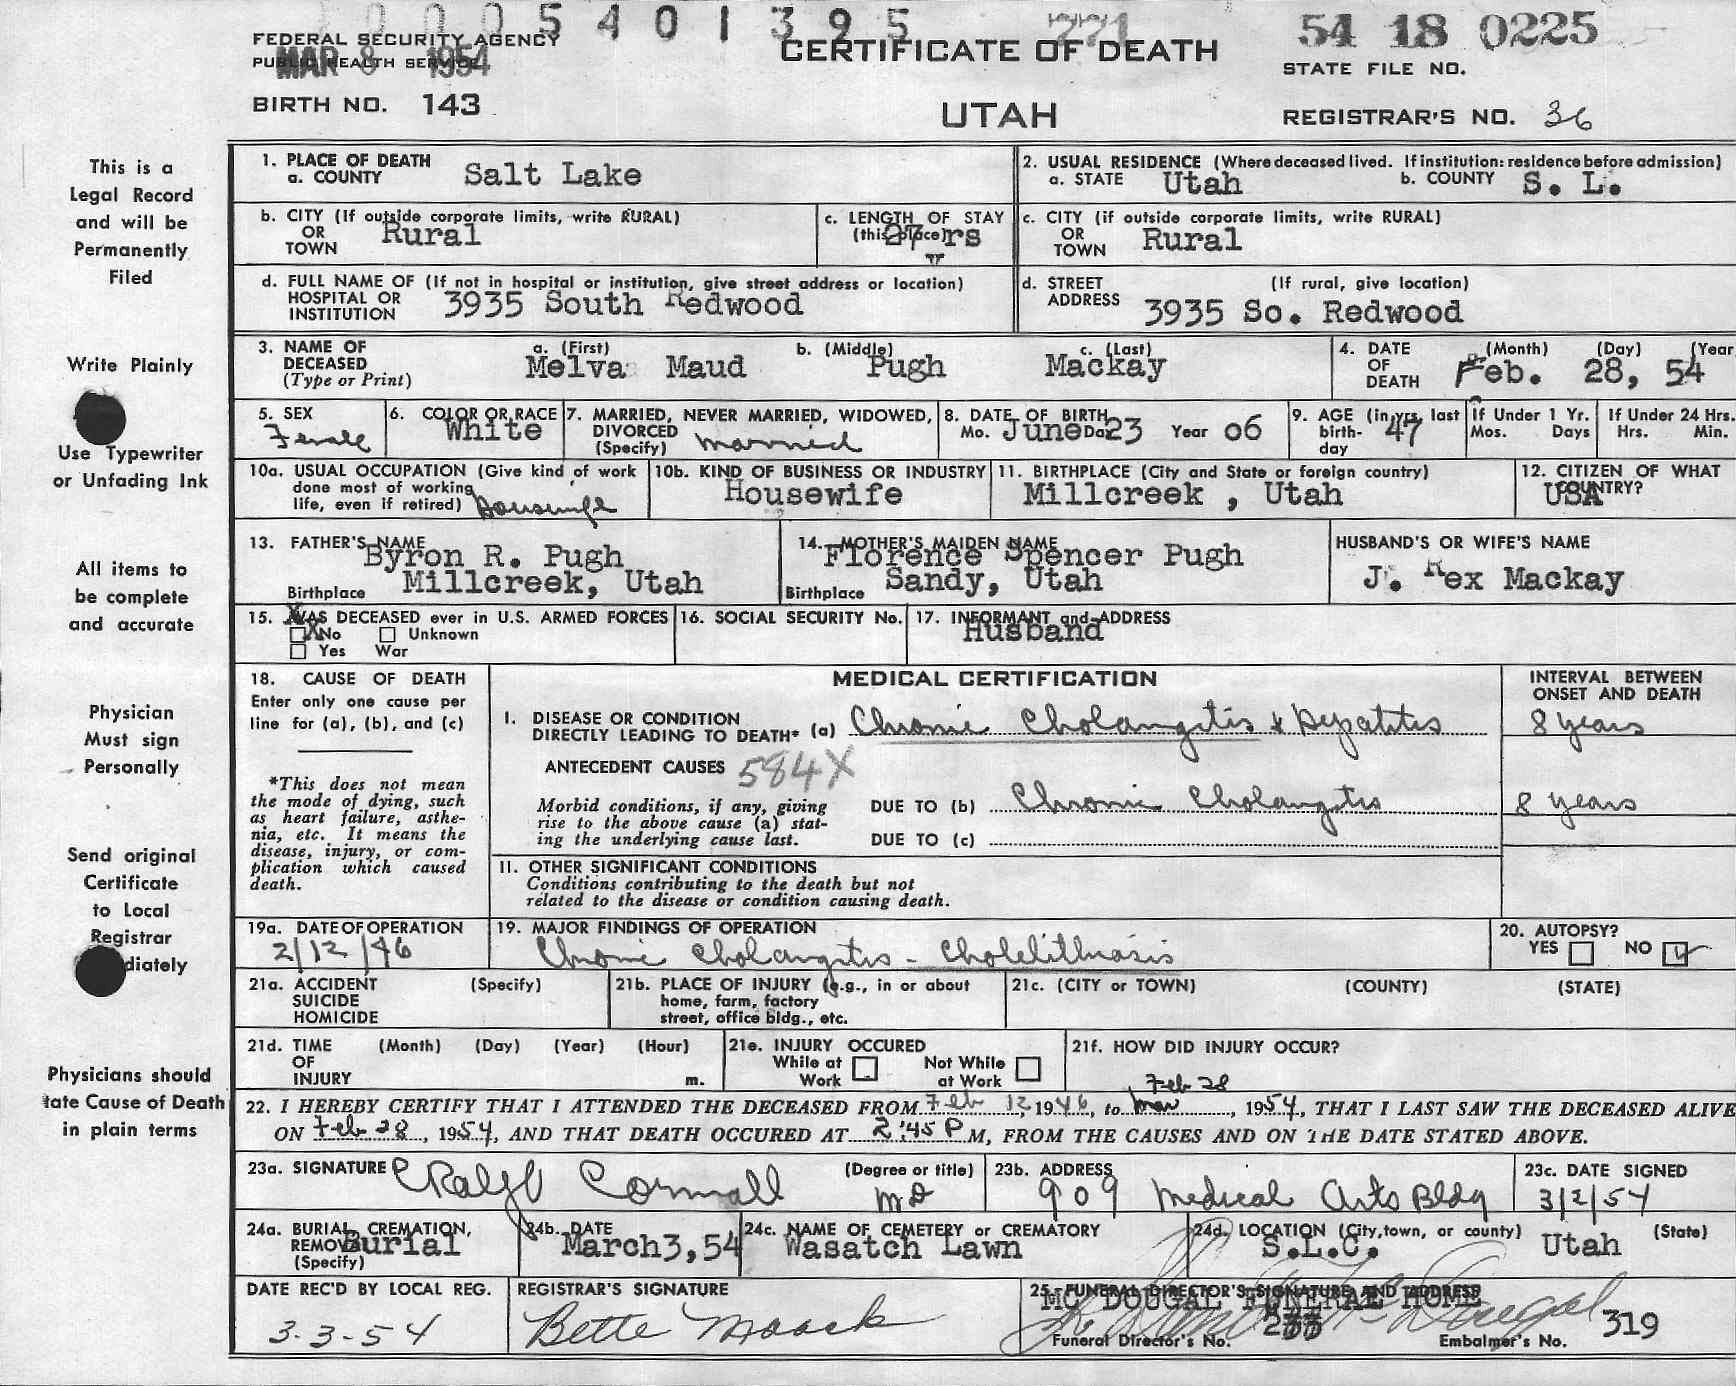 0 0 0 5 4 0 1 3 9 5 221 54 18 0225
FEDERAL SECURITY AGENCY
PUBLIC HEALTH SERVICE
MAR 8 1954
CERTIFICATE OF DEATH
STATE FILE NO.
BIRTH NO. 143
UTAH
REGISTRAR'S NO. 36
This is a
Legal Record
and will be
Permanently
Filed
Write Plainly
Use Typewriter
or Unfading Ink
All items to
be complete
and accurate
Physician
Must sign
Personally
Send original
Certificate
to Local
Registrar
diately
Physicians should
tate Cause of Death
in plain terms
1. PLACE OF DEATH
a. COUNTY Salt Lake
2. USUAL RESIDENCE (Where deceased lived. If institution: residence before admission)
a. STATE Utah b. COUNTY S. L.
b. CITY (If outside corporate limits, write RURAL)
OR
TOWN Rural
c. LENGTH OF STAY
(this place) 27 yrs
c. CITY (if outside corporate limits, write RURAL)
OR
TOWN Rural
d. FULL NAME OF (If not in hospital or institution, give street address or location)
HOSPITAL OR
INSTITUTION 3935 South Redwood
d. STREET (If rural, give location)
ADDRESS 3935 So. Redwood
3. NAME OF
DECEASED
(Type or Print)
a. (First) b. (Middle) c. (Last)
Melva Maud Pugh Mackay
4. DATE
OF
DEATH
(Month) (Day) (Year
Feb. 28, 54
5. SEX
Female
6. COLOR OR RACE
White
7. MARRIED, NEVER MARRIED, WIDOWED,
DIVORCED
(Specify) married
8. DATE OF BIRTH
Mo. June Da 23 Year 06
9. AGE (in yrs. last
birth-
day 47
If Under 1 Yr.
Mos. Days
If Under 24 Hrs.
Hrs. Min.
10a. USUAL OCCUPATION (Give kind of work
done most of working
life, even if retired) Housewife
10b. KIND OF BUSINESS OR INDUSTRY
Housewife
11. BIRTHPLACE (City and State or foreign country)
Millcreek , Utah
12. CITIZEN OF WHAT
COUNTRY?
USA
13. FATHER'S NAME
Byron R. Pugh
Birthplace Millcreek, Utah
14. MOTHER'S MAIDEN NAME
Florence Spencer Pugh
Birthplace Sandy, Utah
HUSBAND'S OR WIFE'S NAME
J. Rex Mackay
15. WAS DECEASED ever in U.S. ARMED FORCES
X No Unknown
Yes War
16. SOCIAL SECURITY No.
17. INFORMANT and ADDRESS
Husband
18. CAUSE OF DEATH
Enter only one cause per
line for (a), (b), and (c)
*This does not mean
the mode of dying, such
as heart failure, asthe-
nia, etc. It means the
disease, injury, or com-
plication which caused
death.
MEDICAL CERTIFICATION
INTERVAL BETWEEN
ONSET AND DEATH
I. DISEASE OR CONDITION
DIRECTLY LEADING TO DEATH* (a) Chronic Cholangitis & Hepatitis 8 years
ANTECEDENT CAUSES 584X
Morbid conditions, if any, giving
rise to the above cause (a) stat-
ing the underlying cause last.
DUE TO (b) Chronic Cholangitis 8 years
DUE TO (c)
II. OTHER SIGNIFICANT CONDITIONS
Conditions contributing to the death but not
related to the disease or condition causing death.
19a. DATE OF OPERATION
2/12/46
19. MAJOR FINDINGS OF OPERATION
Chronic Cholangitis - Cholelithiasis
20. AUTOPSY?
YES NO
21a. ACCIDENT (Specify)
SUICIDE
HOMICIDE
21b. PLACE OF INJURY (e.g., in or about
home, farm, factory
street, office bldg., etc.
21c. (CITY or TOWN) (COUNTY) (STATE)
21d. TIME (Month) (Day) (Year) (Hour)
OF
INJURY m.
21e. INJURY OCCURED
While at
Work
Not While
at Work
21f. HOW DID INJURY OCCUR?
Feb 28
22. I HEREBY CERTIFY THAT I ATTENDED THE DECEASED FROM Feb 12, 1946, to Mar, 1954, THAT I LAST SAW THE DECEASED ALIVE
ON Feb 28, 1954, AND THAT DEATH OCCURED AT 2:45 P M, FROM THE CAUSES AND ON THE DATE STATED ABOVE.
23a. SIGNATURE (Degree or title)
Ralph Cornwall MD
23b. ADDRESS
909 Medical Arts Bldg
23c. DATE SIGNED
3/2/54
24a. BURIAL, CREMATION,
REMOVAL
(Specify)
Burial
24b. DATE
March3,54
24c. NAME OF CEMETERY or CREMATORY
Wasatch Lawn
24d. LOCATION (City,town, or county) (State)
S.L.C. Utah
DATE REC'D BY LOCAL REG.
3-3-54
REGISTRAR'S SIGNATURE
Bette Moock
25. FUNERAL DIRECTOR'S SIGNATURE AND ADDRESS
MC DOUGAL FUNERAL HOME
Funeral Director's No. 233
Embalmer's No. 319